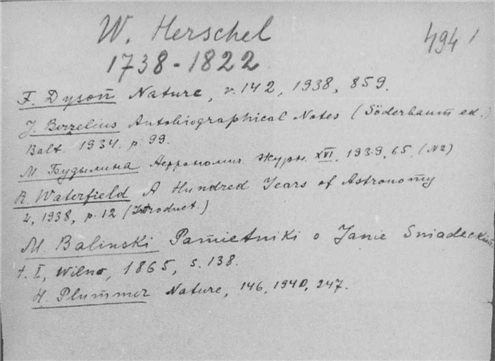 W. Herschel
494
1738-1822
F. Dyson Nature, v. 142, 1938, 859.
J. Berzelius Autobiographical Notes (Söderbaum ed.)
Balt. 1934. p. 99.
М. Будылина Астрономич. журн. XVI, 1939, 65, (N2)
R. Waterfield A Hundred Years of Astronomy
L, 1938, p. 12 (Introduct.)
M. Balinski Pamietniki o Janie Sniadeckim,
t. I, Wilno, 1865, s. 138.
H. Plummer Nature, 146, 1940, 247.